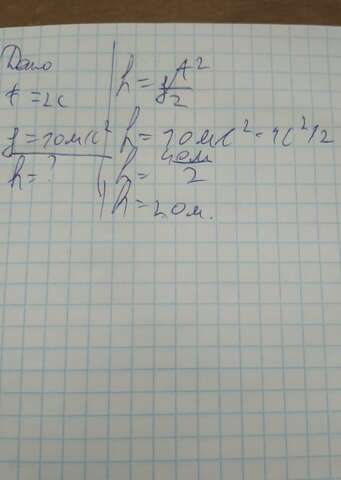 Дано
t = 2с
g = 10мс²
h = ?
h = gt²/2
h = 10мс² · 4с²/2
h = 40м/2
h = 20м.